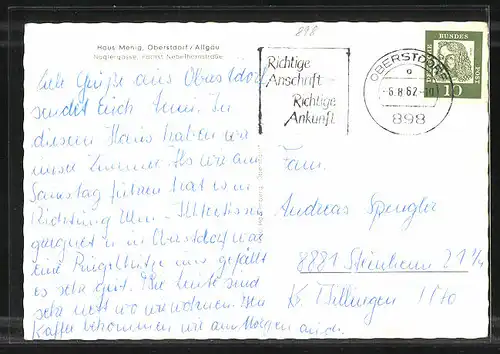 898
Haus Menig, Oberstdorf/Allgäu
Naglergasse,
Richtige
Anschrift
Richtige
Ankunft
OBERSTDORF
a
-6.8.62.-10
898
DEUTSCHE BUNDESPOST
10
Liebe Grüße aus Oberstdorf
sendet Euch In
diesem Haus haben wir
unser Zimmer. Als wir am
Samstag fuhren hat es in
Richtung Ulm - Illertissen
geregnet u. in Oberstdorf war
eine uns gefällt
es sehr gut. Die Leute sind
sehr nett wo wir wohnen. Den
Kaffee bekommen wir am Morgen auch.
Fam.
Andreas Spengler
8881 Steinheim 21 1/4
Kr. Dillingen